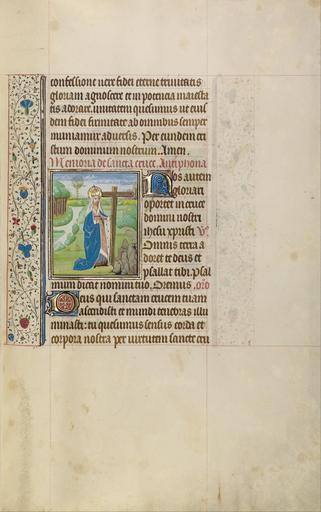 confessione vere fidei eterne trinitatis
gloriam agnoscere et in potencia maiesta
tis adorare unitatem quesumus ut eius
dem fidei firmitate ab omnibus semper
muniamur adversis. Per eundem cri
stum dominum nostrum. Amen.
Memoria de sancta cruce. Antiphona
Nos autem
gloriari
oportet in cruce
domini nostri
ihesu xpristi V
Omnis terra a
doret te deus et
psallat tibi. psal
mum dicat nomini tuo. Oremus. oro
Deus qui sanctam crucem tuam
ascendisti et mundi tenebras illu
minasti: tu quesumus sensus corda et
corpora nostra per virtutem sancte cru